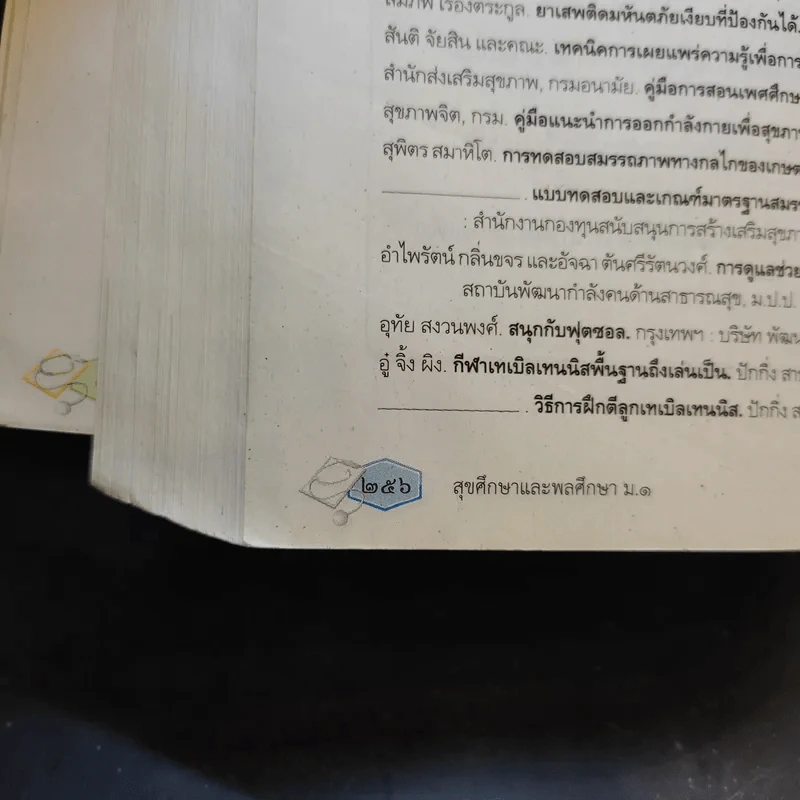 สมภพ เรืองตระกูล. ยาเสพติดมหันตภัยเงียบที่ป้องกันได้.
สันติ จัยสิน และคณะ. เทคนิคการเผยแพร่ความรู้เพื่อการ
สำนักส่งเสริมสุขภาพ, กรมอนามัย. คู่มือการสอนเพศศึกษ
สุขภาพจิต, กรม. คู่มือแนะนำการออกกำลังกายเพื่อสุขภา
สุพิตร สมาหิโต. การทดสอบสมรรถภาพทางกลไกของเกษต
. แบบทดสอบและเกณฑ์มาตรฐานสมร
: สำนักงานกองทุนสนับสนุนการสร้างเสริมสุขภา
อำไพรัตน์ กลิ่นขจร และอัจฉา ตันศรีรัตนวงศ์. การดูแลช่วย
สถาบันพัฒนากำลังคนด้านสาธารณสุข, ม.ป.ป.
อุทัย สงวนพงศ์. สนุกกับฟุตซอล. กรุงเทพฯ : บริษัท พัฒน
อู๋ จิ้ง ผิง. กีฬาเทเบิลเทนนิสพื้นฐานถึงเล่นเป็น. ปักกิ่ง สา
. วิธีการฝึกตีลูกเทเบิลเทนนิส. ปักกิ่ง ส
๒๕๖ สุขศึกษาและพลศึกษา ม.๑